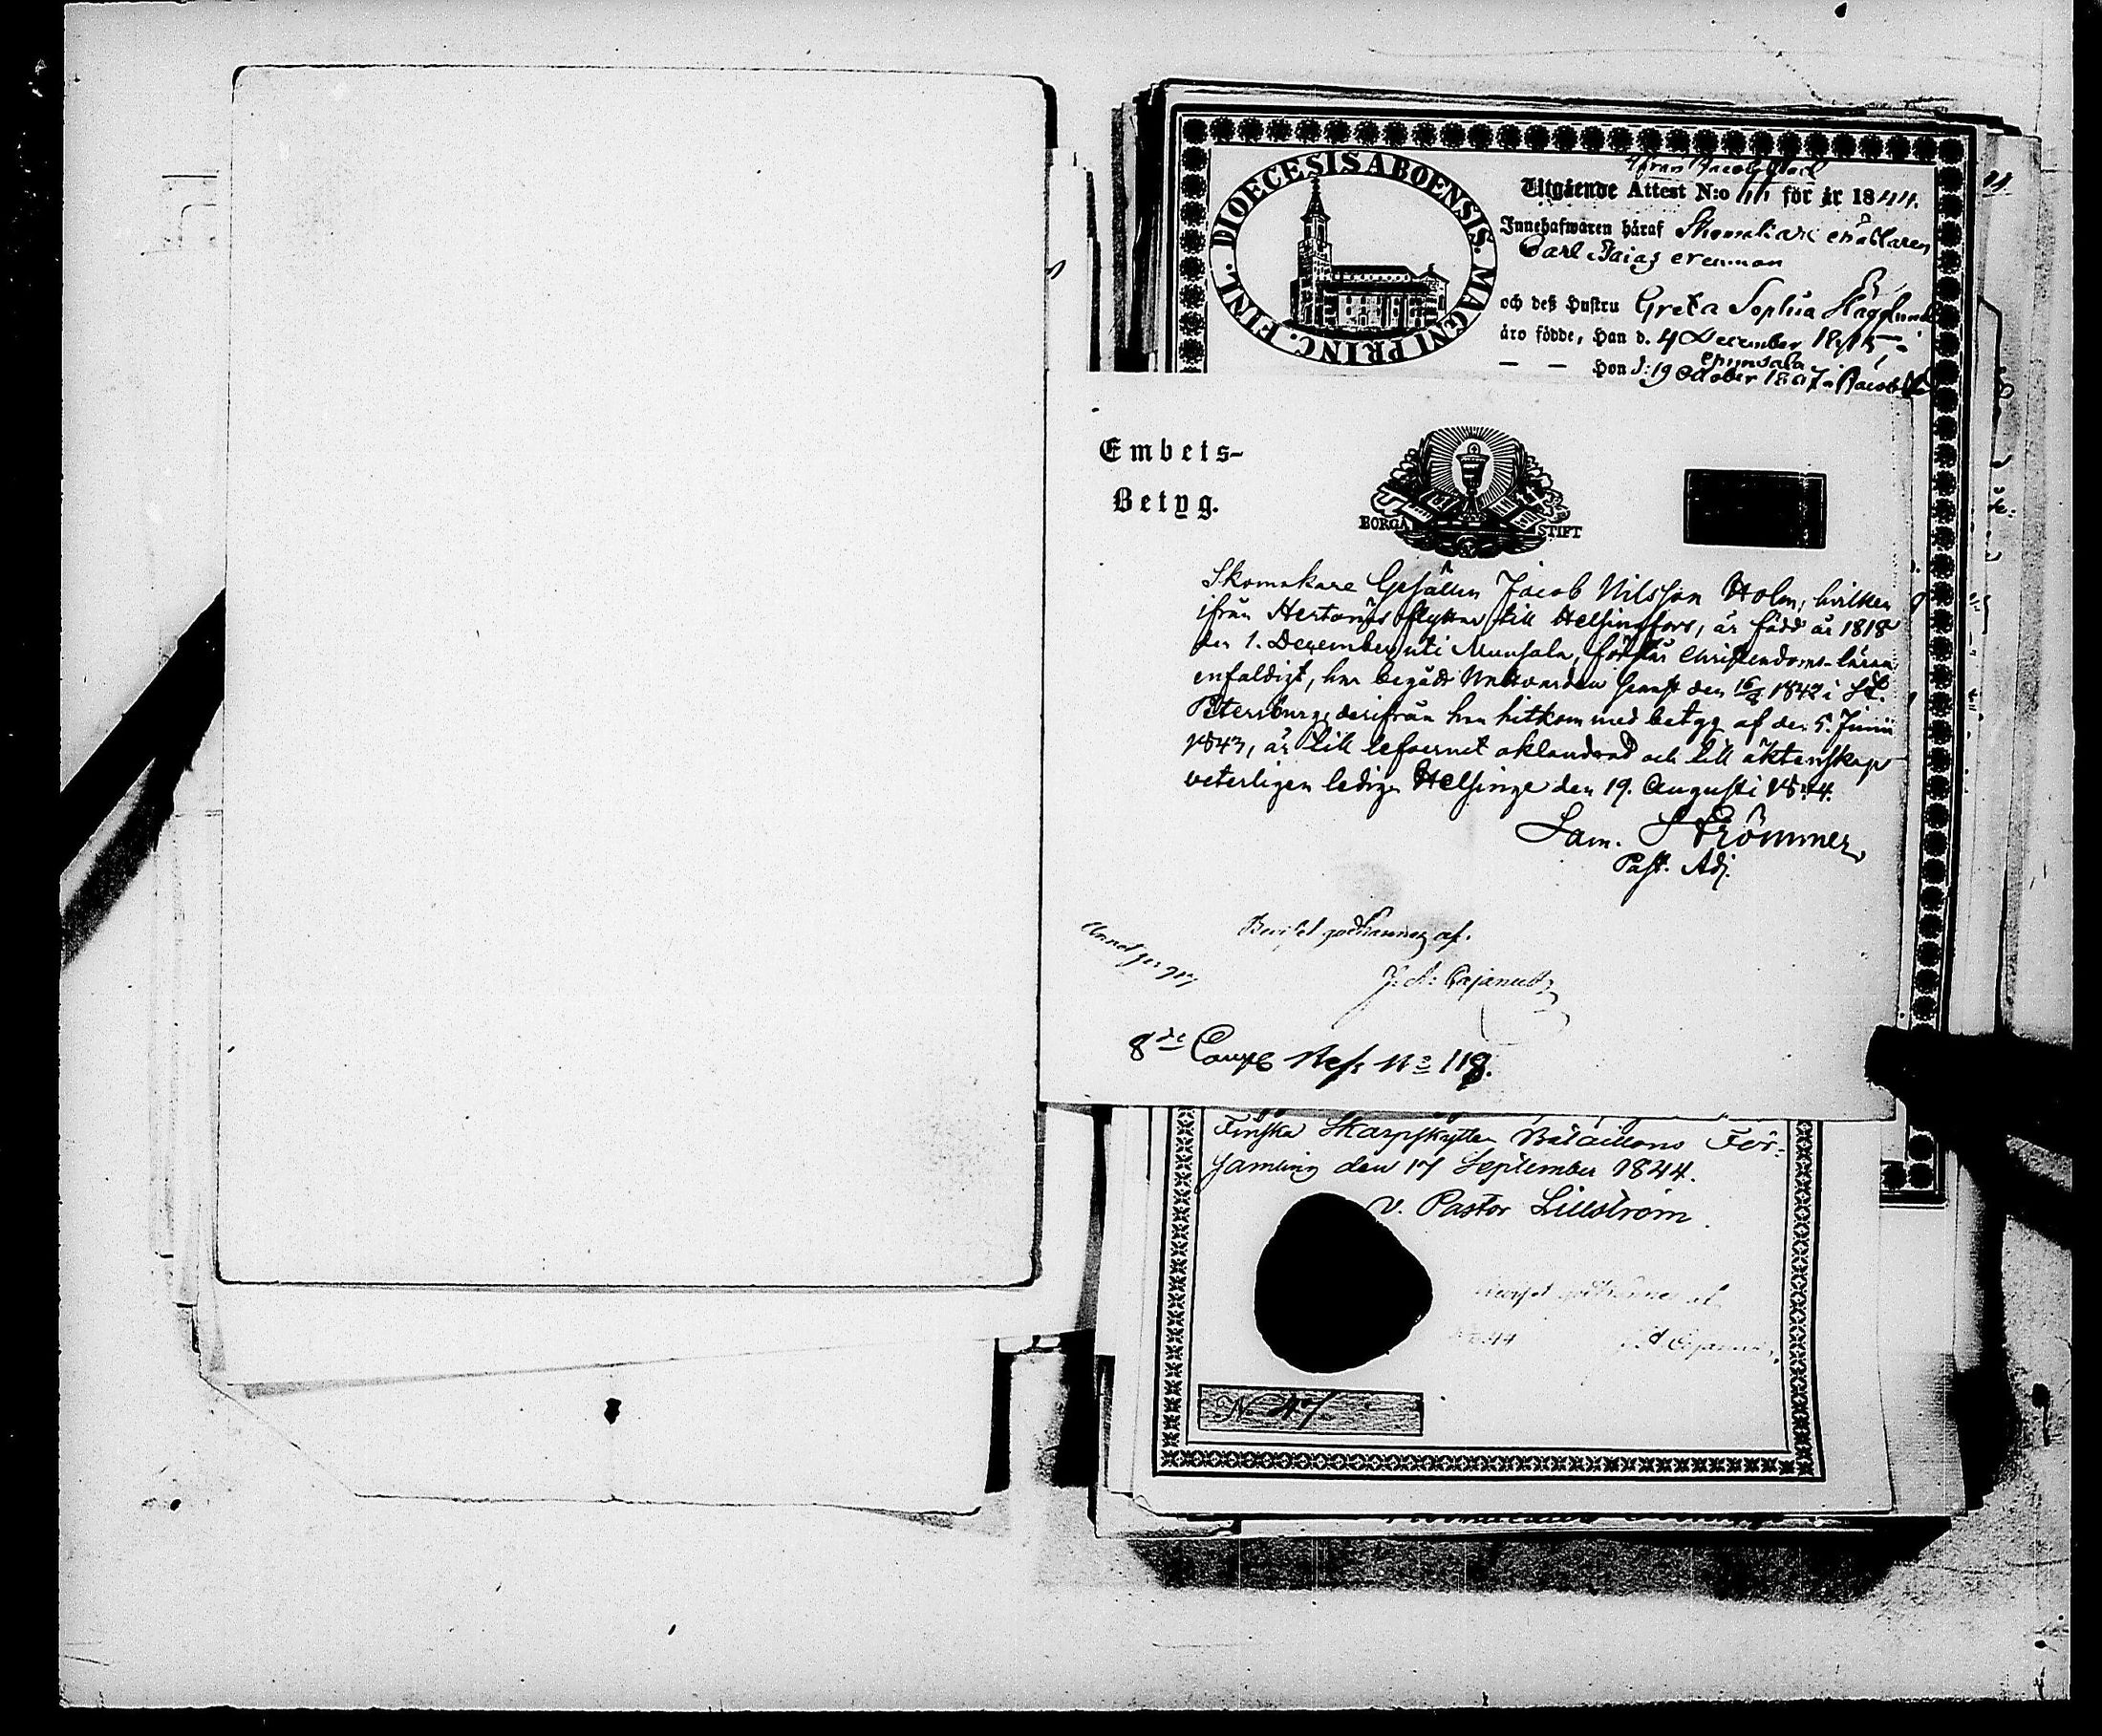 DIOECESIS ABOENSIS. MAGNI PRINC. FINL.
ifrån Jacobstad
Utgående Attest N:o 111 för år 1844.
Innehafwaren häraf Skomakare
Carl
och deß Hustru Greta Sophia Hägglund
äro födde, Han d. 4 December 1815 i
Munsala
— — Hon d: 19 October 1807 i Jacobstad
Embets-
Betyg.
BORGÅ STIFT
Skomakare Gesällen Jacob Nilsson Holm, hvilken
ifrån Hertonäs flyttar till Helsingfors, är född år 1818
den 1. December uti Munsala, förstår Christendoms-läran
enfaldigt, har begådt Nattvarden senast den 16/4 1842 i St.
Petersburg, derifrån han hitkom med betyg af den 5. Junii
1843, är till lefvernet oklandrad och till äktenskap
veterligen ledig. Helsinge den 19. Augusti 1844.
Sam. Strömmer
Past. Adj.
Beviset godkännes af.
J. A: Cajanus
8de Comp Ref: No 118.
Finska Skarpskytte Bataillons För-
samling den 17 September 1844.
v. Pastor Lillström.
Beviset godkännes af
Cajanus
No 47.